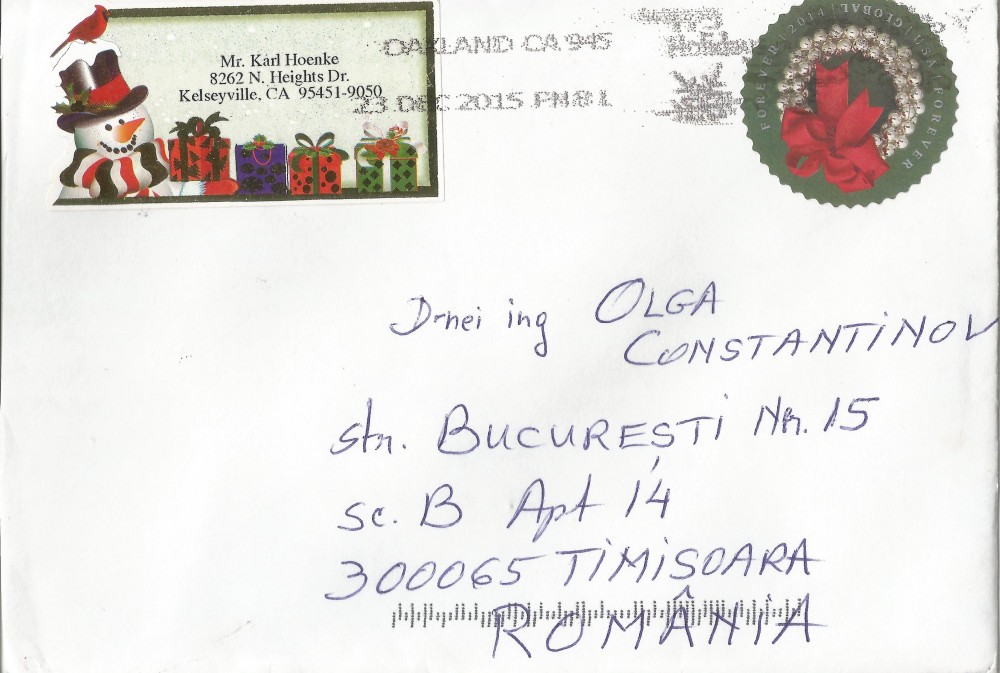 Mr. Karl Hoenke
8262 N. Heights Dr.
Kelseyville, CA 95451-9050
OAKLAND CA 945
23 DEC 2015 PM 8 L
FOREVER 2014 | GLOBAL | USA | FOREVER
D-nei ing OLGA
CONSTANTINOV
str. BUCUREȘTI Nr. 15
sc. B Apt 14
300065 TIMISOARA
ROMÂNIA